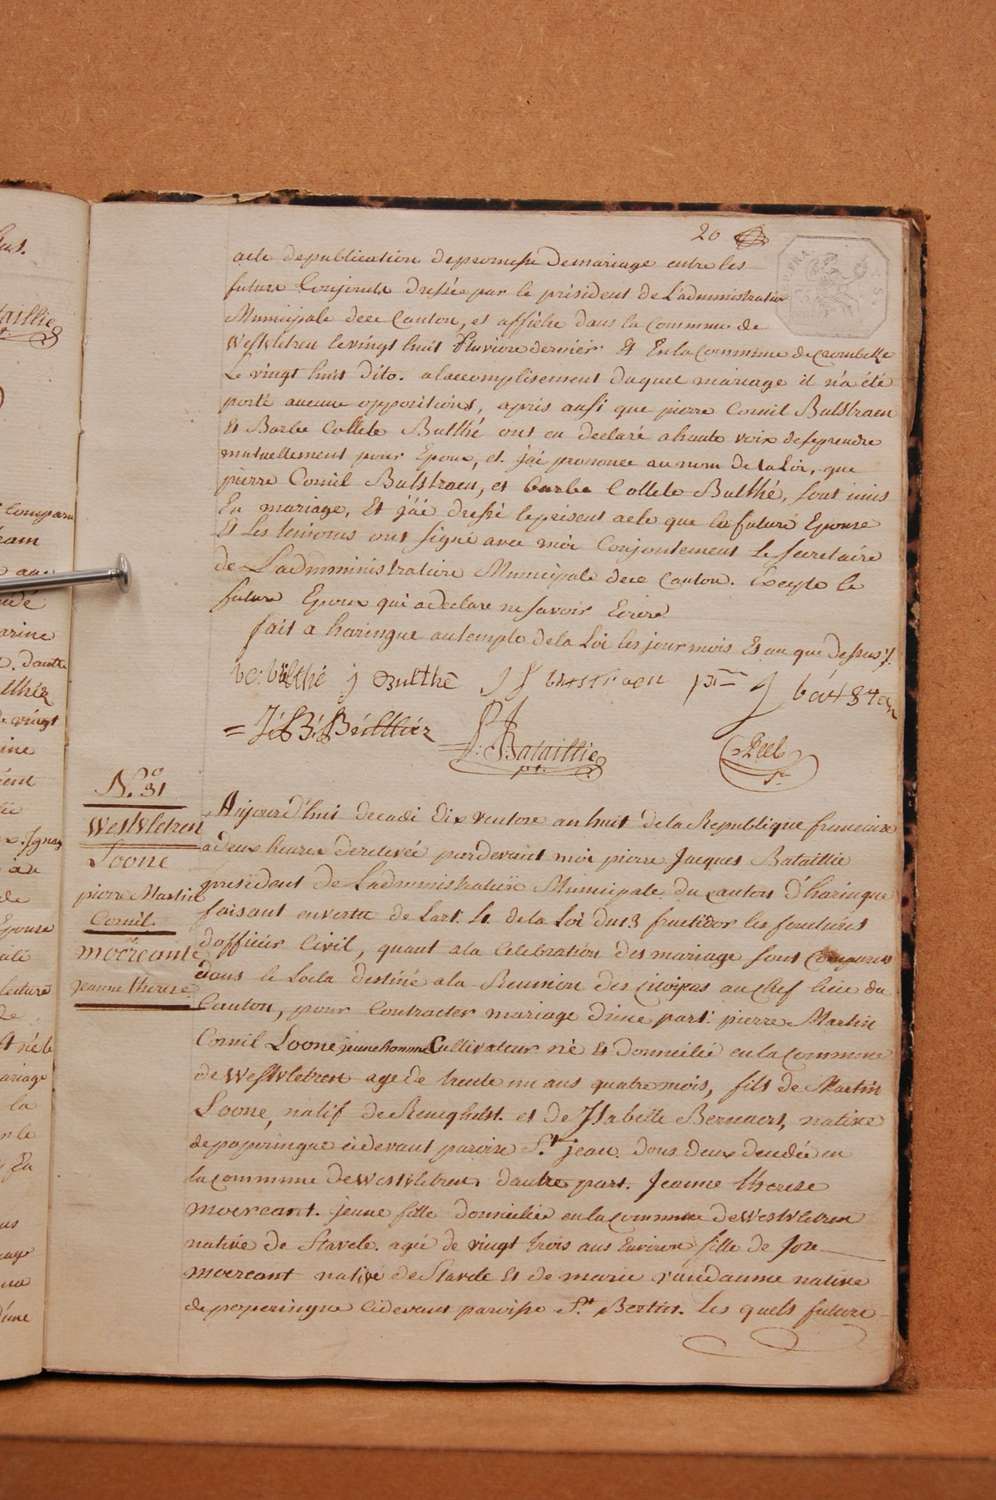 20
acte de publication de promesse de mariage entre les
futurs Conjoints dressée par le président de L'administration
Municipale de ce Canton, et affiché dans la Commune de
Westvletren le vingt huit Pluviore dernier Et En la Commune de Crombeke
Le vingt huit dito. a laccomplisement duquel mariage il n'a été
porté aucune oppositions, après ausi que pierre Cornil Bulstraen
Et Barbe Collete Bulthé ont eu declaré a haute voix de se prendre
mutuellement pour Epoux, et j'ai prononcé au nom de la Loi, que
pierre Cornil Bulstraen, et barbe Collete Bulthé, sont unis
En mariage, Et j'ái dressé le present acte que la future Epouse
Et Les temoins ont signé avec moi Conjointement Le secretaire
de L'admministrature Municipale de ce Canton. Excepte le
future Epoux qui a declare ne savoir Ecrire
fait a haringue au temple de la Loi les jour mois Et an que dessus
be: bulthé j Bulthé
J: B: Bulthéz
P: J: Bataillie
pt.
Peel
Sre
No. 31
Westvletren
Loone
pierre Martin
Cornil.
et
moereant
Jeanne therese
Aujourd'hui decadi dix ventose an huit de la Republique francaise
a deux heures de relevée pardevant moi pierre Jacques Bataillie
president de L'administration Municipale du canton d'haringue
faisant en vertu de L'art. 4. de la Loi du 13 fructidor les fonctions
d'officier Civil, quant a la Celebration des mariage sont Comparus
dans le Locla destiné a la Reunion des Citoijens au Chef lieu du
Canton, pour Contracter mariage d'une part: pierre Martin
Cornil Loone jeune homme Cultivateur né Et domicilié en la Commune
de Westvletren age de trente un ans quatre mois, fils de Martin
Loone, natif de Reninghelst. et de Isabelle Bernaert, native
de poperingue ci devant paroise St. jean. tous deux decedée en
la commune de Westvletren d'autre part. Jeanne therese
moereant. jeune fille domiciliée en la Commune de Westvletren
native de Stavele agée de vingt trois ans Environ fille de Jore
moereant native de Stavele Et de marie vandamme native
de poperingue cidevant paroisse St. Bertin. Les quels future